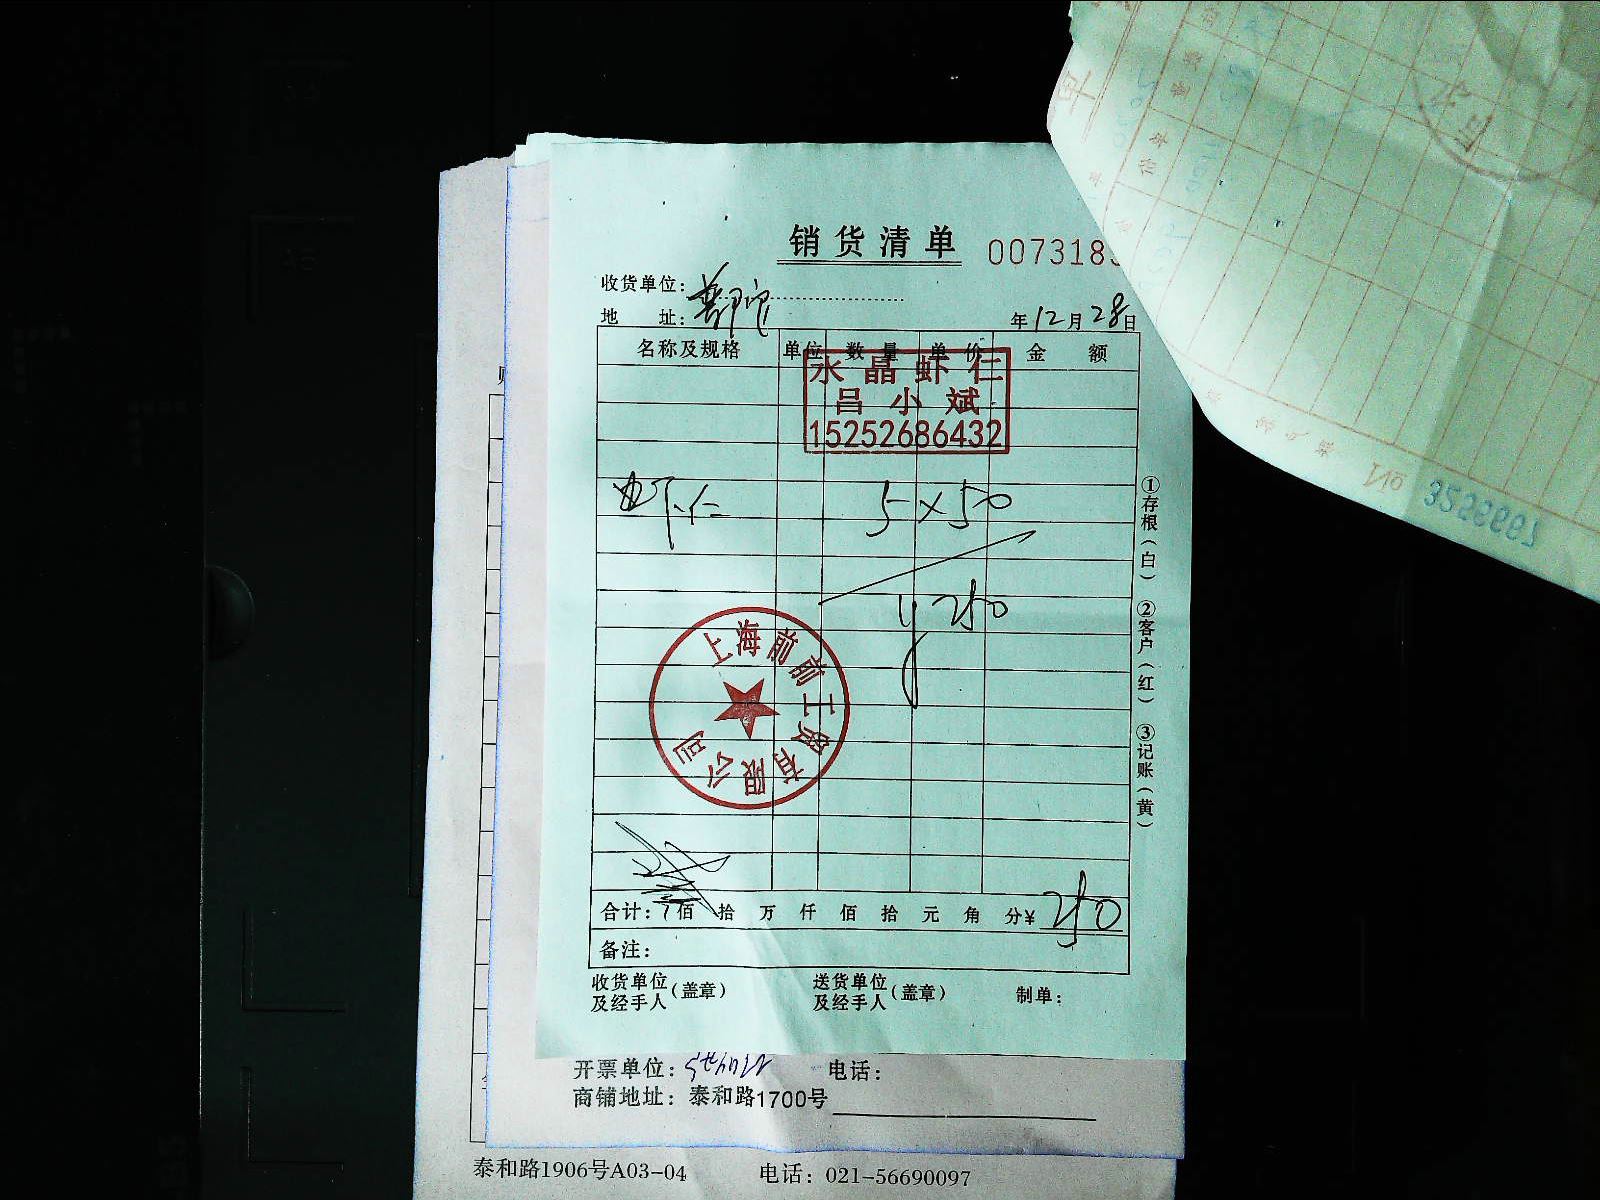 销货清单 0073183
收货单位：普陀
地 址：
年12月28日
名称及规格 单位 数量 单价 金额
水晶虾仁
吕小斌
15252686432
虾仁 5×50
¥250
上海前前工贸有限公司
合计： 佰 拾 万 仟 佰 拾 元 角 分¥250
备注：
收货单位及经手人（盖章） 送货单位及经手人（盖章） 制单：
①存根（白） ②客户（红） ③记账（黄）
开票单位： 电话：
商铺地址：泰和路1700号
泰和路1906号A03-04 电话：021-56690097